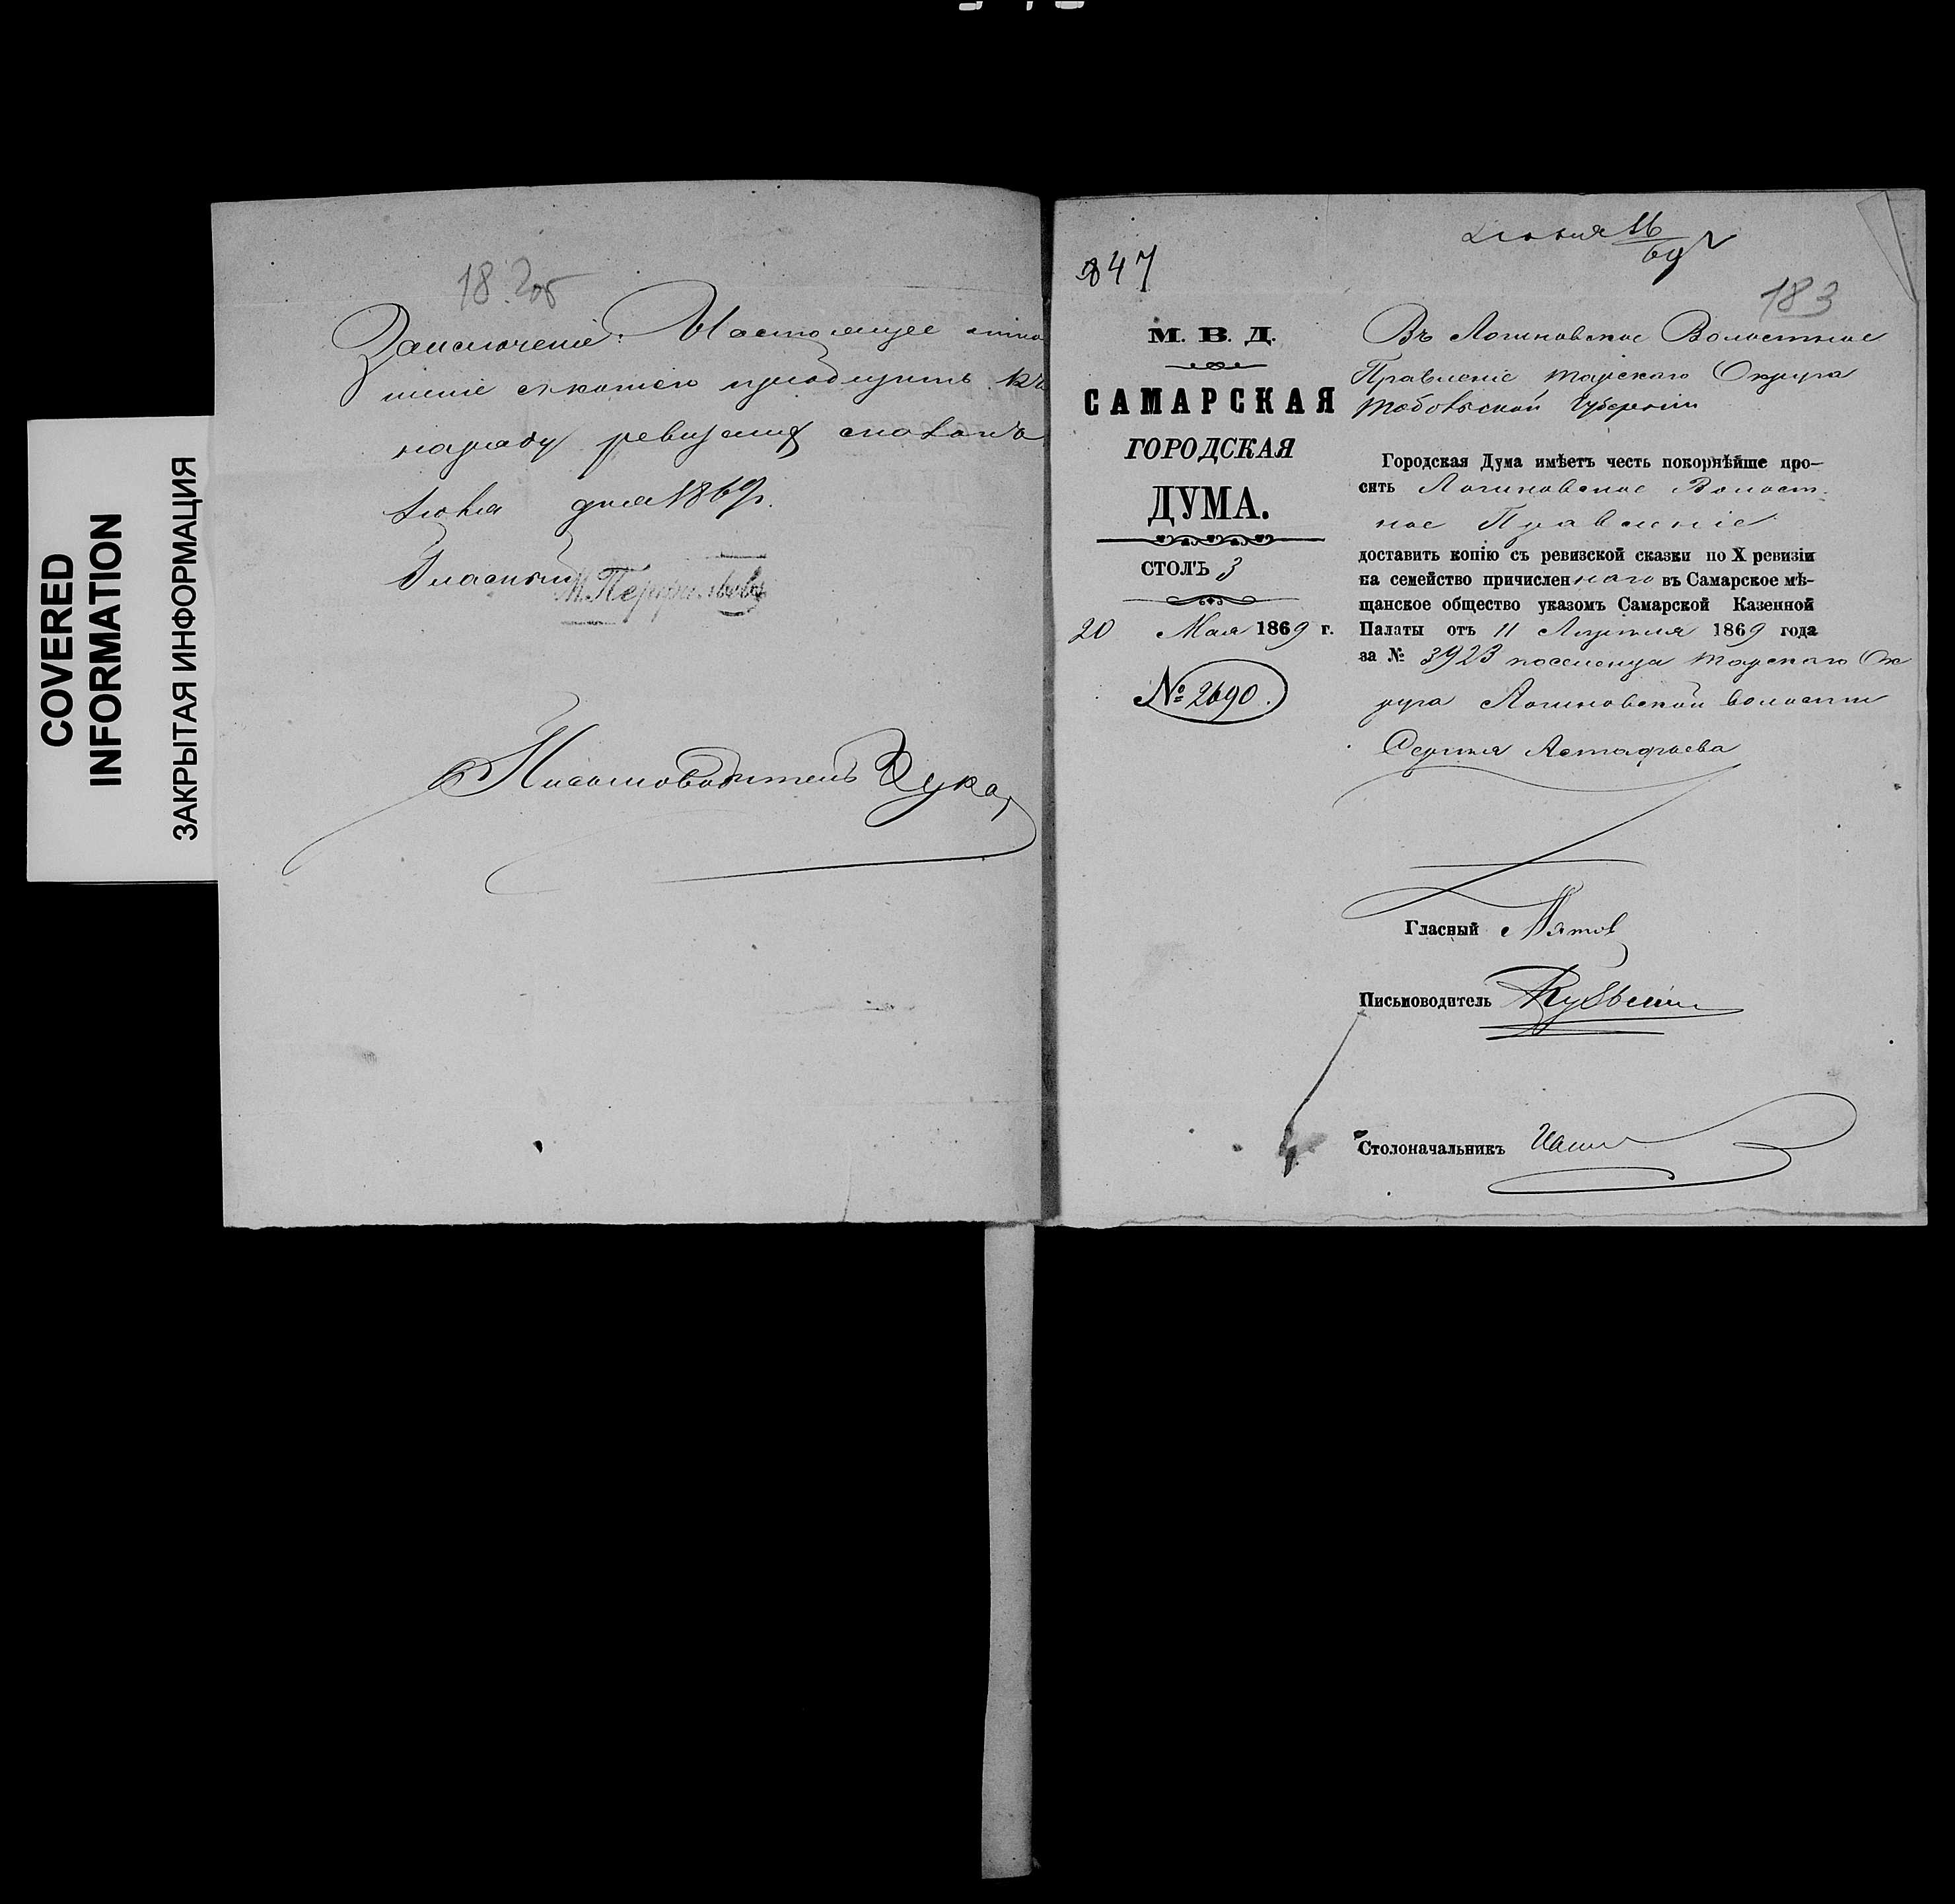 COVERED
INFORMATION
ЗАКРЫТАЯ ИНФОРМАЦИЯ
182об
Заключеніе: Настоящее отно
шеніе съ копіею пріобщить къ
наряду ревизкихъ сказокъ
Іюня дня 1869 г.
Гласный М. Перфильевъ
Письмоводитель
847
Іюня 16
69 г
183
М. В. Д.
САМАРСКАЯ
ГОРОДСКАЯ
ДУМА.
СТОЛЪ 3
20 Мая 1869 г.
№ 2690.
Въ Логиновское Волостное
Правленіе Тарскаго Округа
Тобольской Губерніи
Городская Дума имѣетъ честь покорнѣйше про-
сить Логиновское Волост-
ное Правленіе
доставить копію съ ревизской сказки по X ревизіи
на семейство причисленнаго въ Самарское мѣ-
щанское общество указомъ Самарской Казенной
Палаты отъ 11 Апреля 1869 года
за № 3923 поселенца Тарскаго Ок
руга Логиновской волости
Сергея Астафьева
Гласный
Письмоводитель
Столоначальникъ